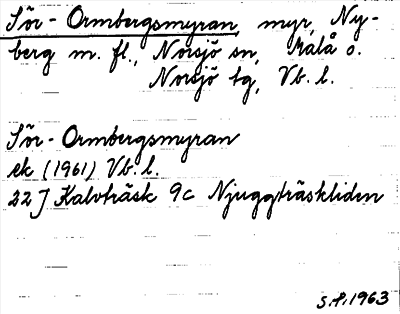 Sör-Ormbergsmyran, myr, Ny-
berg m. fl., Norsjö sn, Malå o.
Norsjö tg, Vb. l.
Sör-Ormbergsmyran
ek (1961) Vb. l.
22J Kalvträsk 9c Njuggträskliden
S.P. 1963